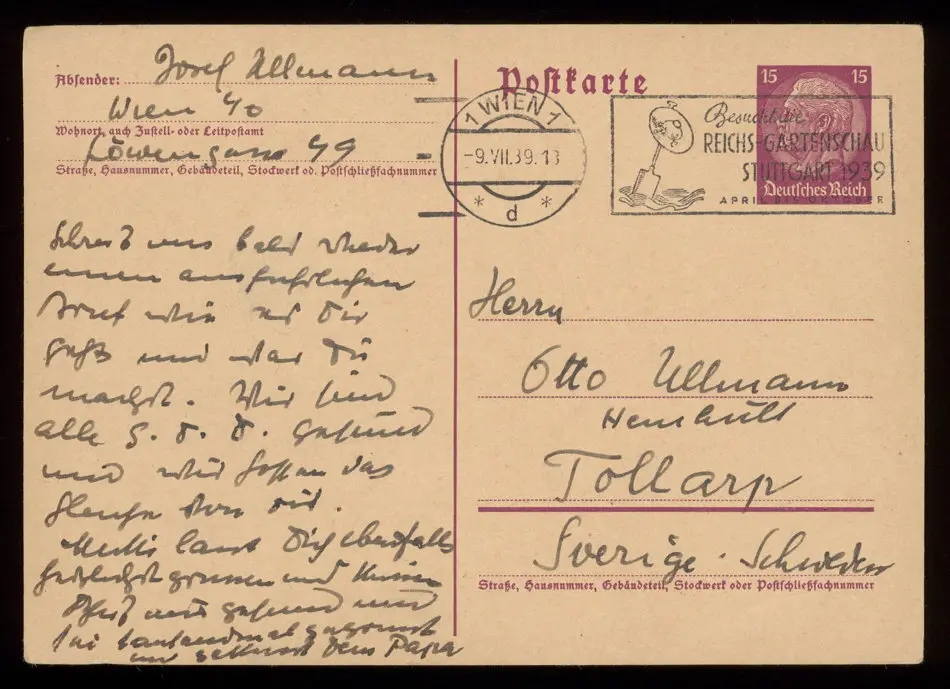 Absender: Josef Ullmann
Wien 40
Wohnort, auch Zustell- oder Leitpostamt
Löwengasse 49
Straße, Hausnummer, Gebäudeteil, Stockwerk od. Postschließfachnummer
Schreib uns bald wieder
einen ausführlichen
Brief wie es Dir
geht und was Du
machst. Wir sind
alle G. s. D. gesund
und wir hoffen das
Gleiche von Dir.
Mutti lässt Dich ebenfalls
herzlichst grüssen und küssen
Bleib mir gesund und
sei tausendmal gegrüsst
und geküsst Dein Papa
Postkarte
1 WIEN 1
-9.VII.39.13
* d *
Besucht die
REICHS-GARTENSCHAU
STUTTGART 1939
APRIL BIS OKTOBER
15 15
Deutsches Reich
Herrn
Otto Ullmann
Tollarp
Sverige. Schweden
Straße, Hausnummer, Gebäudeteil, Stockwerk oder Postschließfachnummer